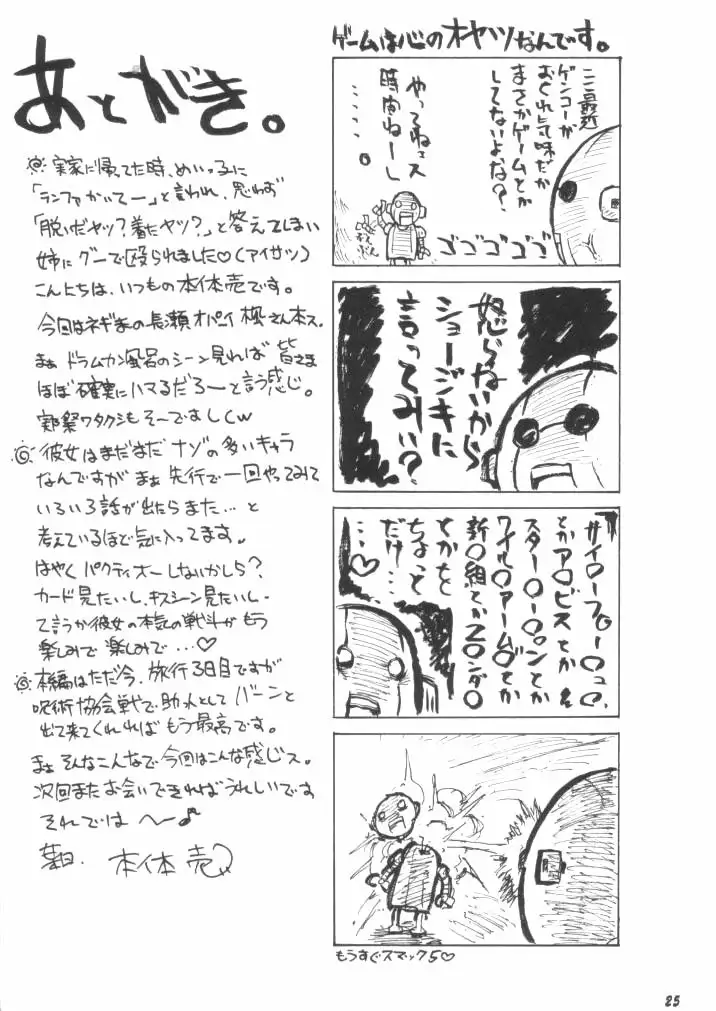 ゲームは心のオヤツなんです。
ここ最近
ゲンコーが
おくれ気味だが
まさかゲームとか
してないよな?
やってねェス
時間ねーし
・・・・・。
ゴゴゴゴゴ
怒らないから
ショージキに
言ってみい?
サイ○ーフ○ー○ュ○、
とかア○ビスとか
スター○ー○ンとか
ワイル○アームズとか
新○組とかZ○ンダ○
とかをと
ちょっと
だけ…
…♡
もうすぐスマック5♡
あとがき。
実家に帰ってた時、めいっ子に
「ランファかいてー」と言われ、思わず
「脱いだヤツ?着たヤツ?」と答えてしまい
姉にグーで殴られました♡(アイサツ)
こんにちは、いつもの本体売です。
今回はネギまの長瀬オパーイ楓さん本ス。
まぁドラムカン風呂のシーン見れば皆さま
ほぼ確実にハマるだろーと言う感じ。
実際ワタクシもそーですしくw
彼女はまだまだナゾの多いキャラ
なんですがまぁ先行で一回やってみて
いろいろ話が出たらまた…と
考えているほど気に入ってます。
はやくパクティオーしないかしら?
カード見たいし、キスシーン見たいし-
て言うか彼女の本気の戦斗がもう
楽しみで楽しみで…♡
本編はただ今、旅行3日目ですが
呪術協会戦で助っ人としてバーンと
出て来てくれればもう最高です。
まぁそんなこんなで今回はこんな感じス。
次回またお会いできればうれしいです
それでは〜♪
本体売
25